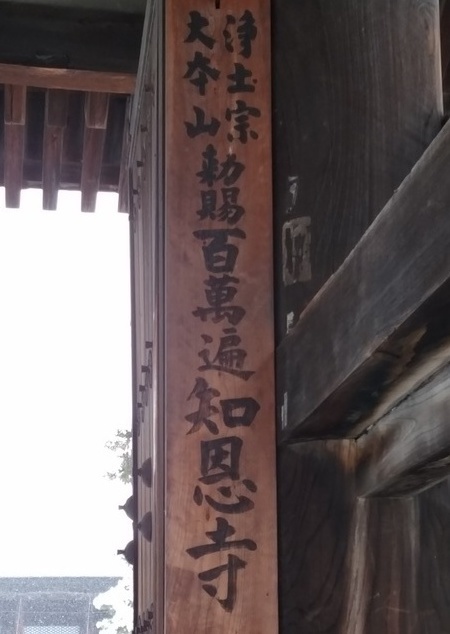 浄土宗
大本山
勅賜
百萬遍
知恩寺